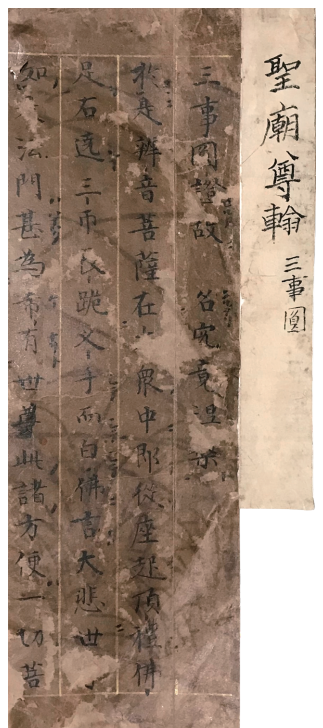 聖廟尊翰 三事圓
三事圓證故 名究竟涅槃
於是辨音菩薩在衆中即從座起頂禮佛
足右遶三帀長跪叉手而白佛言大悲世
如法門甚為希有世尊此諸方便一切菩